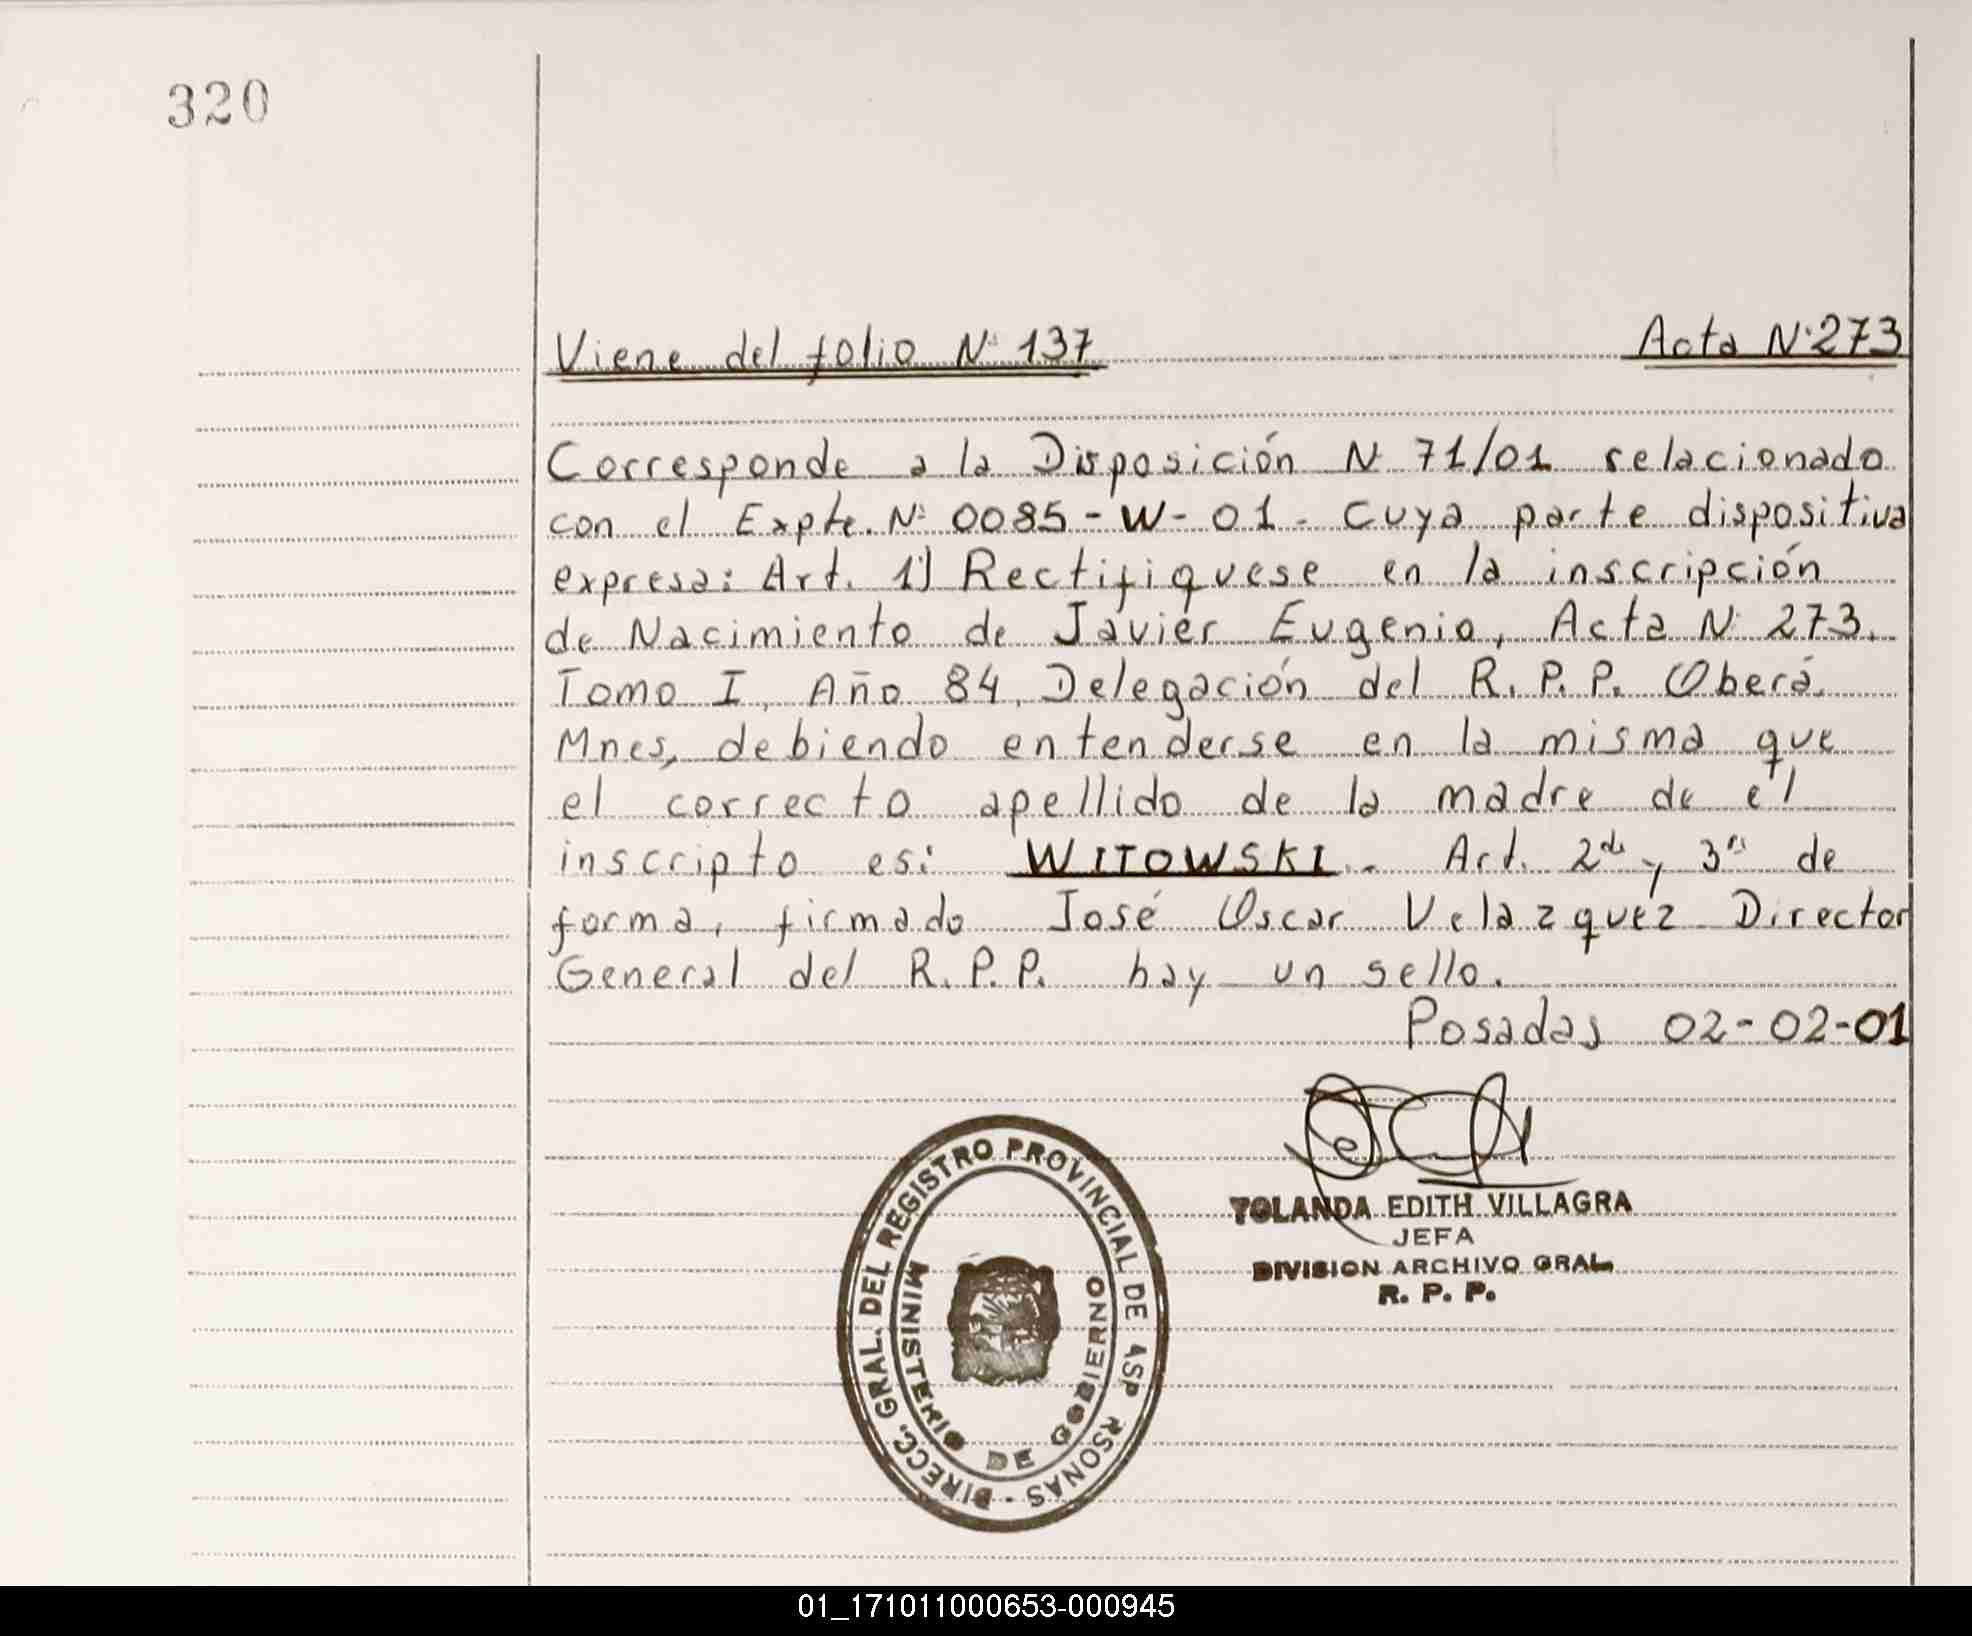 320
Viene del folio Nº 137 Acta Nº 273
Corresponde a la Disposición Nº 71/01 relacionado
con el Expte. Nº 0085-W-01. Cuya parte dispositiva
expresa: Art. 1º) Rectifiquese en la inscripción
de Nacimiento de Javier Eugenio, Acta Nº 273.
Tomo I, Año 84, Delegación del R.P.P. Oberá.
Mnes, debiendo entenderse en la misma que
el correcto apellido de la madre de el
inscripto es: WITOWSKI.- Art. 2do y 3ro de
forma, firmado José Oscar Velazquez Director
General del R.P.P. hay un sello.
Posadas 02-02-01
YOLANDA EDITH VILLAGRA
JEFA
DIVISION ARCHIVO GRAL.
R. P. P.
DIRECC. GRAL. DEL REGISTRO PROVINCIAL DE LAS PERSONAS -
MINISTERIO DE GOBIERNO
01_171011000653-000945